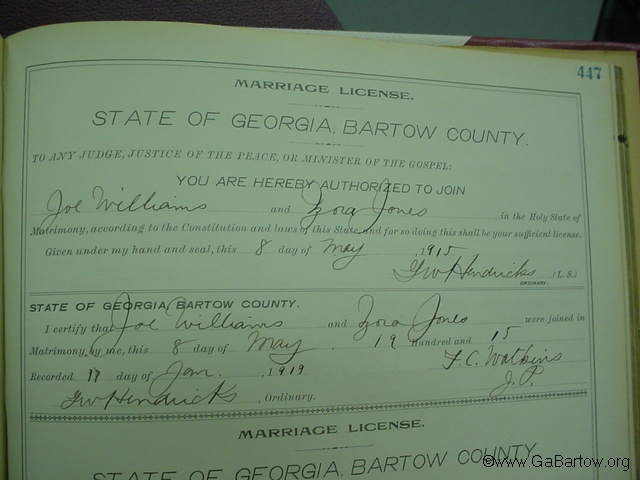 447
MARRIAGE LICENSE.
STATE OF GEORGIA, BARTOW COUNTY.
TO ANY JUDGE, JUSTICE OF THE PEACE, OR MINISTER OF THE GOSPEL:
YOU ARE HEREBY AUTHORIZED TO JOIN
Joe Williams and Izora Jones in the Holy State of
Matrimony, according to the Constitution and laws of this State, and for so doing this shall be your sufficient license.
Given under my hand and seal, this 8 day of May, 1915
GW Hendricks (L.S.)
ORDINARY.
STATE OF GEORGIA, BARTOW COUNTY.
I certify that Joe Williams and Izora Jones were joined in
Matrimony, by me, this 8 day of May. 19 Hundred and 15
Recorded 17 day of Jan., 1919 F. C. Watkins
GW Hendricks, Ordinary. J. P.
MARRIAGE LICENSE.
STATE OF GEORGIA, BARTOW COUNTY.
©www.GaBartow.org